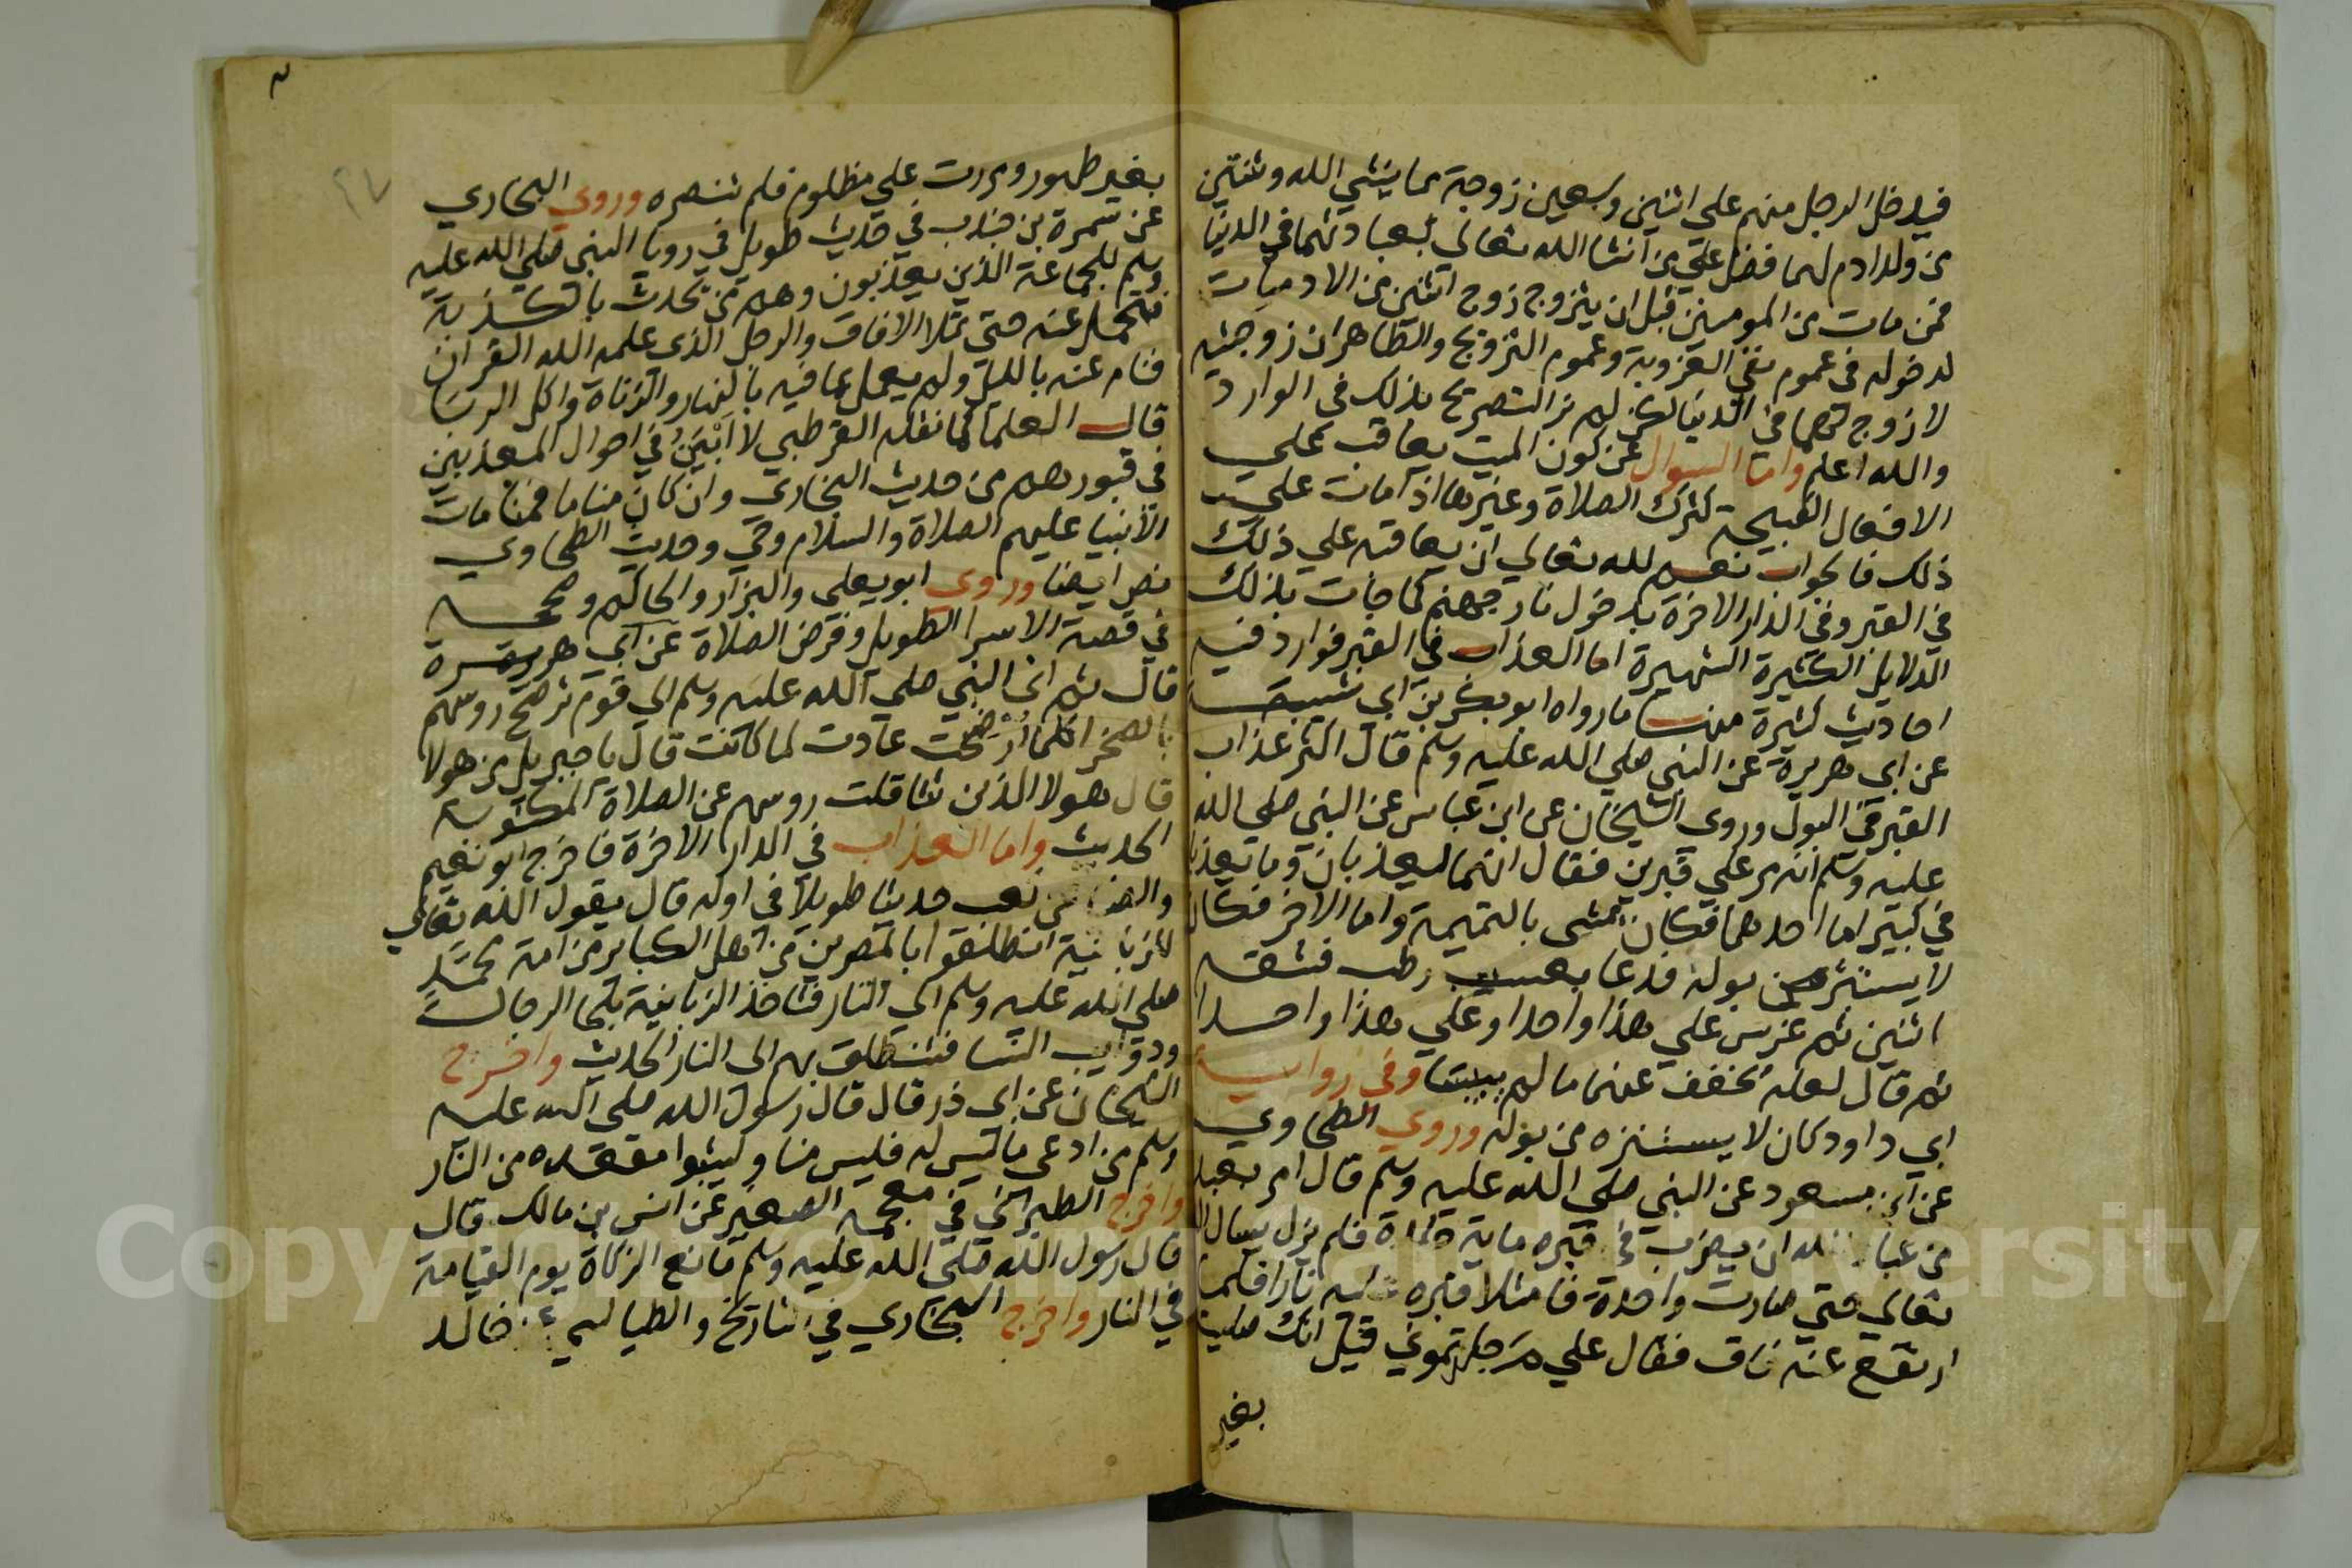 فيدخل الرجل منهم على اثنين وسبعين زوجة مما ينشي الله وثنتين
من ولد ادم لهما فضل علي من انشا الله تعالى بعبادتهما في الدنيا
فمن مات من المومنين قبل ان يتزوج زوج اثنين من الادميات
لدخوله في عموم نفي العزوبة وعموم التزويج والظاهر ان زوجتيه
لا زوج لهما في الدنيا لكن لم نر التصريح بذلك في الوارد
والله اعلم واما السوال عن كون الميت يعاقب علي
الافعال القبيحة كترك الصلاة وغيرها اذا مات علي
ذلك فالجواب نعم لله تعالي ان يعاقبه علي ذلك
في القبر وفي الدار الاخرة بدخول نار جهنم كما جات بذلك
الدلايل الكثيرة الشهيرة اما العذاب في القبر فوارد فيه
احاديث كثيرة منها ما رواه ابو بكر بن ابي شيبة
عن ابي هريرة عن النبي صلي الله عليه وسلم قال اكثر عذاب
القبر في البول وروى الشيخان عن ابن عباس عن النبي صلى الله
عليه وسلم انه مر علي قبرين فقال انهما ليعذبان وما يعذبا
في كبير اما احدهما فكان يمشي بالنميمة واما الاخر فكان
لا يستتر من بوله فدعا بعسيب رطب فشقه
اثنين ثم غرس علي هذا واحدا وعلي هذا واحدا
ثم قال لعله يخفف عنهما ما لم ييبسا وفي رواية
ابي داود كان لا يستنزه من بوله وروي الطحاوي
عن ابن مسعود عن النبي صلى الله عليه وسلم قال امر بعبد
من عباد الله ان يضرب في قبره ماية جلدة فلم يزل يسال الله
تعالي حتي صارت واحدة فامتلا قبره عليه نارا فلما
ارتفع عنه فاق فقال علي م جلدتموني قيل انك صليت
بغير
بغير طهور ومررت علي مظلوم فلم تنصره وروي البخاري
عن سمرة بن جندب في حديث طويل في رويا النبي صلي الله عليه
وسلم للجماعة الذين يعذبون وهم من يحدث بالكذبة
فتحمل عنه حتي تملا الافاق والرجل الذي علمه الله القران
فنام عنه بالليل ولم يعمل بما فيه بالنهار والزناة واكل الربا
قال العلما كما نقله القرطبي لا ابين في احوال المعذبين
في قبورهم من حديث البخاري وان كان مناما فمنامات
الانبيا عليهم الصلاة والسلام وحي وحديث الطحاوي
نص ايضا وروى ابو يعلي والبزار والحاكم وصححه
في قصة الاسرا الطويل وفرض الصلاة عن ابي هريرة
قال ثم اتى النبي صلي الله عليه وسلم الي قوم ترضح روسهم
بالصخر كلما رضحت عادت لما كانت قال يا جبريل من هولا
قال هولا الذين تثاقلت روسهم عن الصلاة المكتوبة
الحديث واما العذاب في الدار الاخرة فاخرج ابو نعيم
حديثا طويلا في اوله قال يقول الله تعالي
للزبانية انطلقوا بالمصرين من اهل الكباير من امة محمد
صلي الله عليه وسلم الي النار فتاخذ الزبانية بلحا الرجال
ودوايب النسا فتنطلق بهم الى النار الحديث واخرج
الشيخان عن ابي ذر قال قال رسول الله صلى الله عليه
وسلم من ادعى ما ليس له فليس منا وليتبوا مقعده من النار
واخرج الطبراني في معجمه الصغير عن انس بن مالك قال
قال رسول الله صلي الله عليه وسلم مانع الزكاة يوم القيامة
في النار واخرج البخاري في التاريخ والطيالسي خالد
Copyright © University